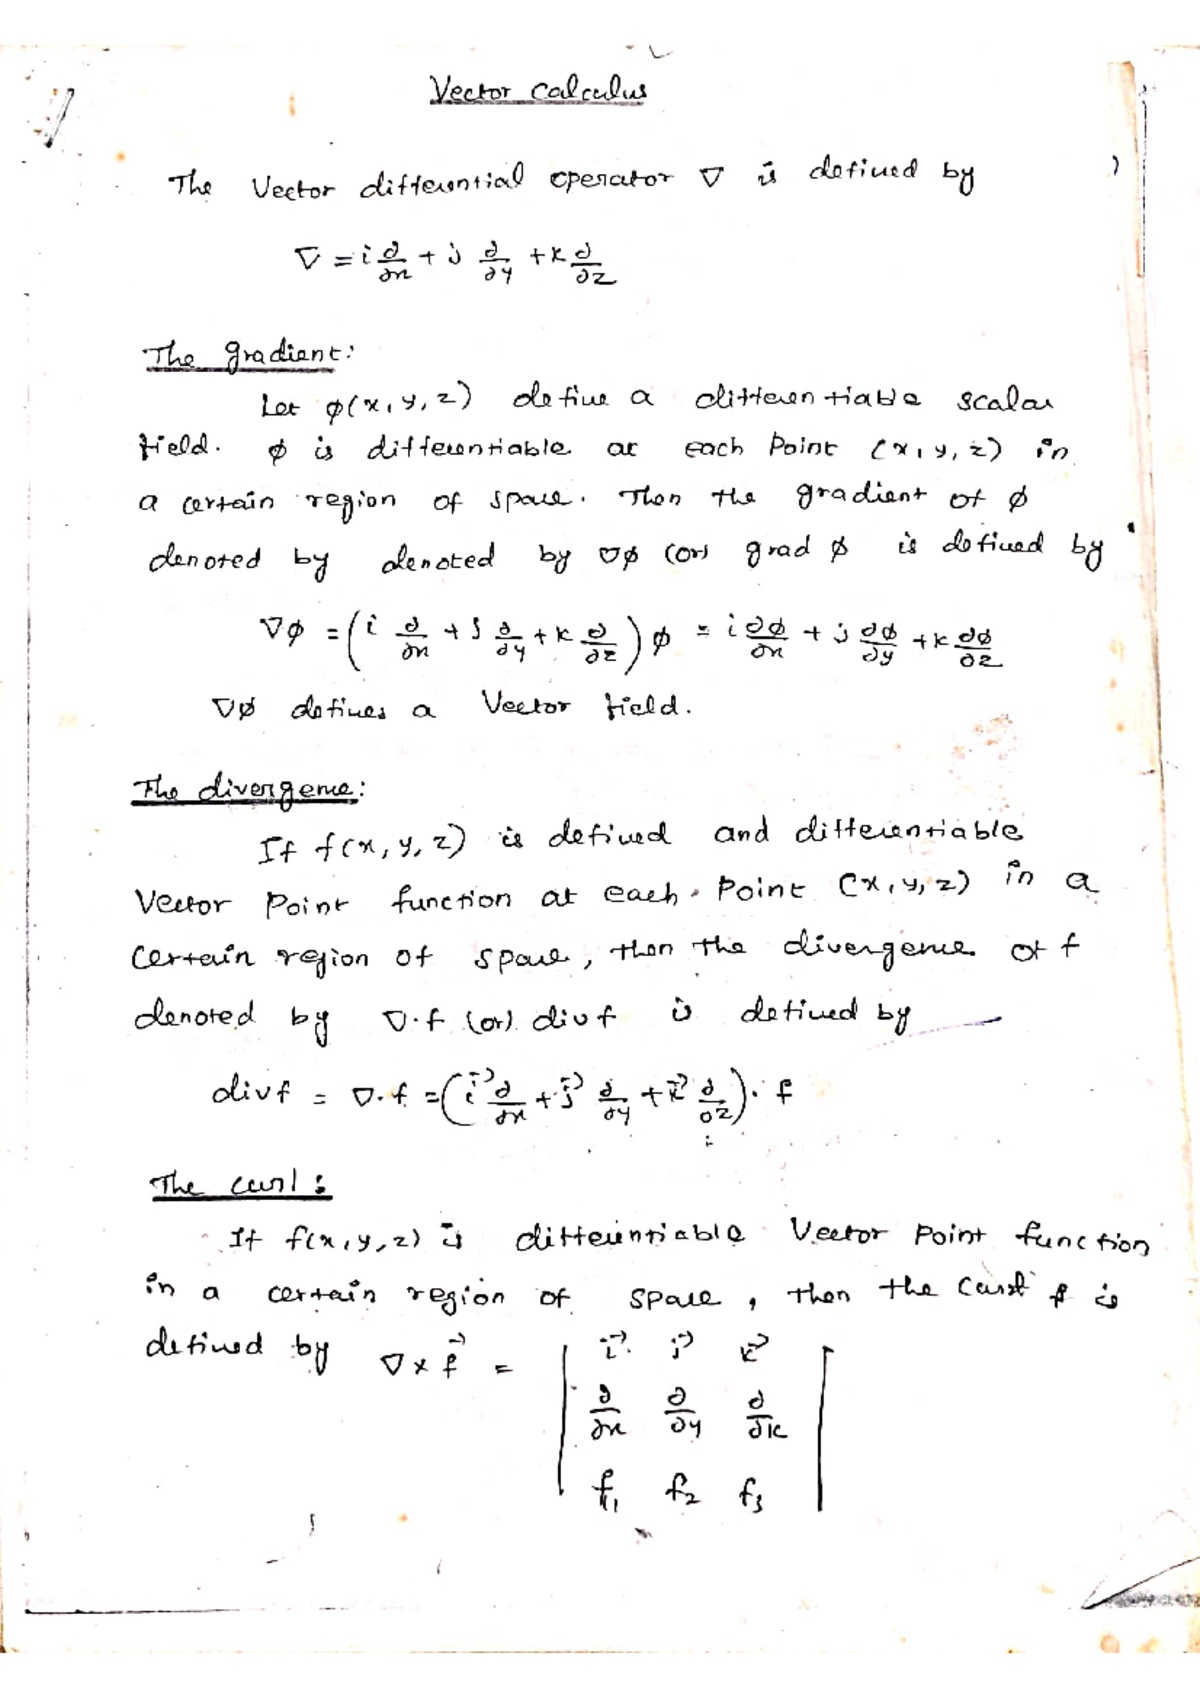 Vector calculus
The Vector differential operator ∇ is defined by
∇ = i ∂/∂x + j ∂/∂y + k ∂/∂z
The gradient:
Let φ(x, y, z) define a differentiable scalar
field. φ is differentiable at each Point (x, y, z) in
a certain region of space. Then the gradient of φ
denoted by denoted by ∇φ (or) grad φ is defined by
∇φ = (i ∂/∂x + j ∂/∂y + k ∂/∂z) φ = i ∂φ/∂x + j ∂φ/∂y + k ∂φ/∂z
∇φ defines a Vector field.
The divergence:
If f(x, y, z) is defined and differentiable
Vector Point function at each Point (x, y, z) in a
certain region of space, then the divergence of f
denoted by ∇.f (or) div f is defined by
div f = ∇.f = (i⃗ ∂/∂x + j⃗ ∂/∂y + k⃗ ∂/∂z). f
The curl:
If f(x, y, z) is differentiable Vector Point function
in a certain region of space, then the curl f is
defined by ∇ × f⃗ = | i⃗ j⃗ k⃗ |
∂/∂x ∂/∂y ∂/∂k
f₁ f₂ f₃